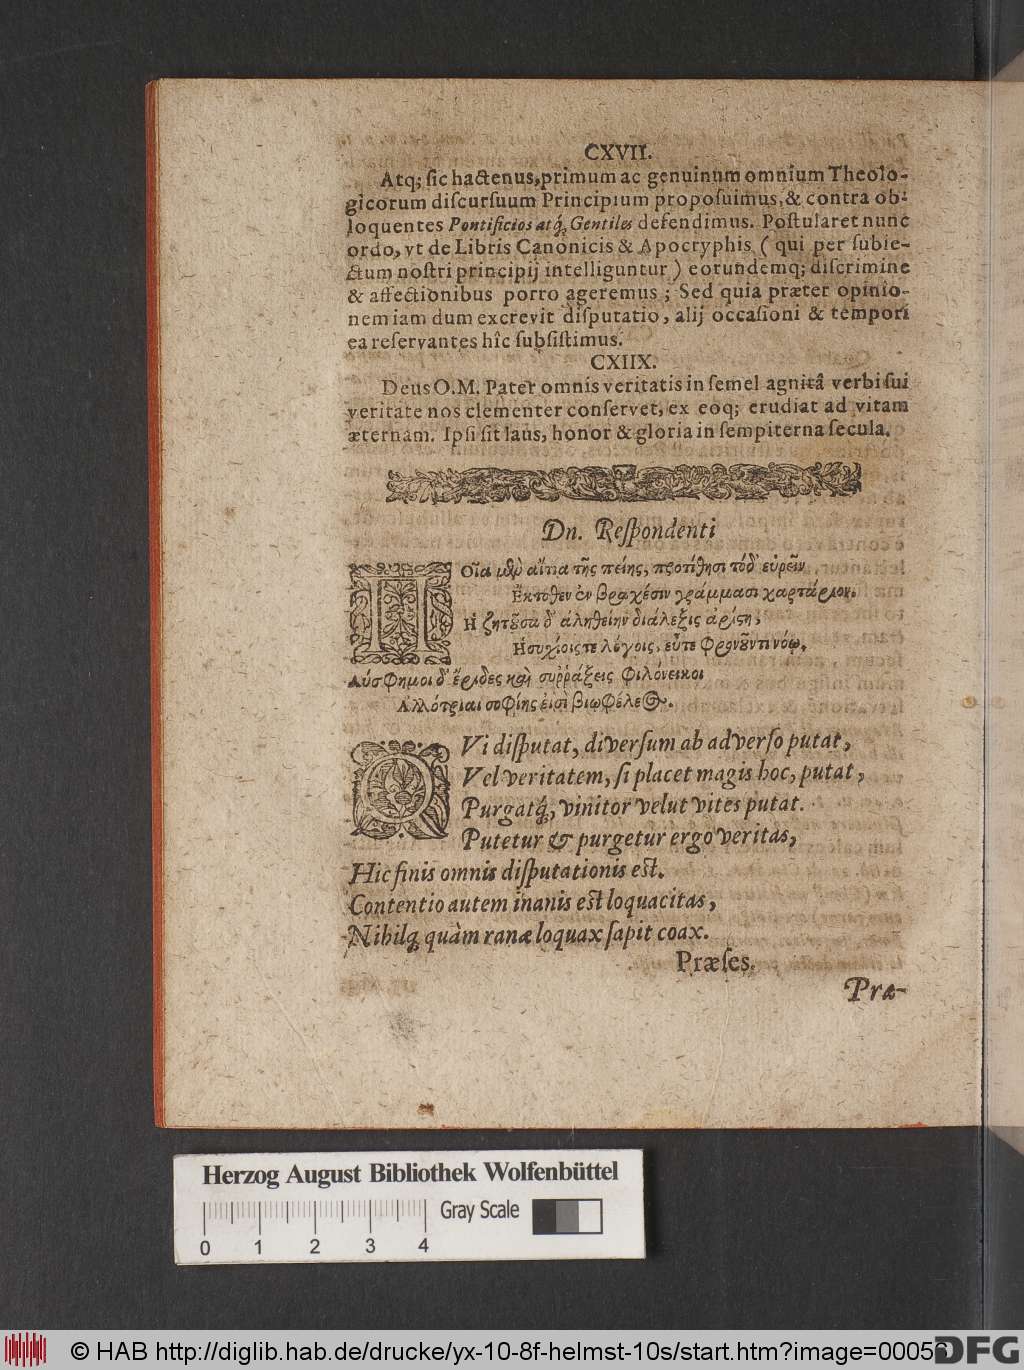 CXVII.
Atq; ſic hactenus, primum ac genuinum omnium Theolo-
gicorum diſcurſuum Principium propoſuimus, & contra ob-
loquentes Pontificios atq́; Gentiles defendimus. Poſtularet nunc
ordo, vt de Libris Canonicis & Apocryphis ( qui per ſubie-
ctum noſtri principij intelliguntur ) eorundemq; diſcrimine
& affectionibus porro ageremus ; Sed quia præter opinio-
nem iam dum excrevit diſputatio, alij occaſioni & tempori
ea reſervantes hîc ſubſiſtimus.
CXIIX.
Deus O. M. Pater omnis veritatis in ſemel agnitâ verbi ſui
veritate nos clementer conſervet, ex eoq; erudiat ad vitam
æternam. Ipſi ſit laus, honor & gloria in ſempiterna ſecula.
Dn. Reſpondenti
Ποῖα μὲν αἴτια τῆς πείης, προτίθησι τόδ' εὑρεῖν
Ἔκτοθεν ἐν βραχέσιν γράμμασι χαρτάριον.
Ἡ ζητοῦσα δ' ἀληθείην διάλεξις ἀρίστη,
Ἡσυχίοις τε λόγοις, εὖτε φρονοῦντι νόῳ.
Δύσφημοι δ' ἔριδες καὶ συῤῥάξεις φιλόνεικοι
Ἀλλότριαι σοφίης εἰσὶ βιωφέλεος.
QVi diſputat, diverſum ab adverſo putat,
Vel veritatem, ſi placet magis hoc, putat,
Purgatq́;, vinitor velut vites putat.
Putetur & purgetur ergo veritas,
Hic finis omnis diſputationis eſt.
Contentio autem inanis eſt loquacitas,
Nihilq; quàm ranæ loquax ſapit coax.
Præſes.
Præ-
Herzog August Bibliothek Wolfenbüttel
0 1 2 3 4 Gray Scale
© HAB http://diglib.hab.de/drucke/yx-10-8f-helmst-10s/start.htm?image=00053
DFG